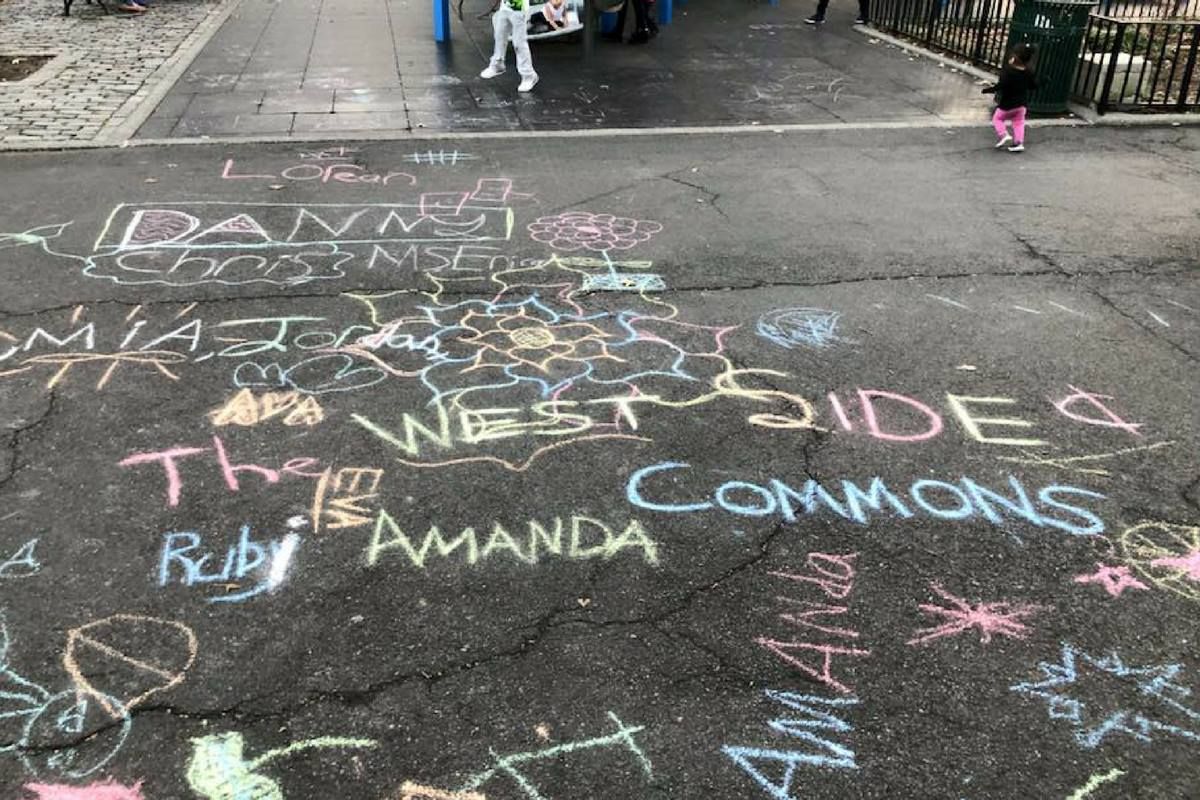 Lorean
DANNy
Chris MSErica
MiA, Jordan
AVA
WEST SIDE
The
COMMONS
Ruby AMANDA
AMANda